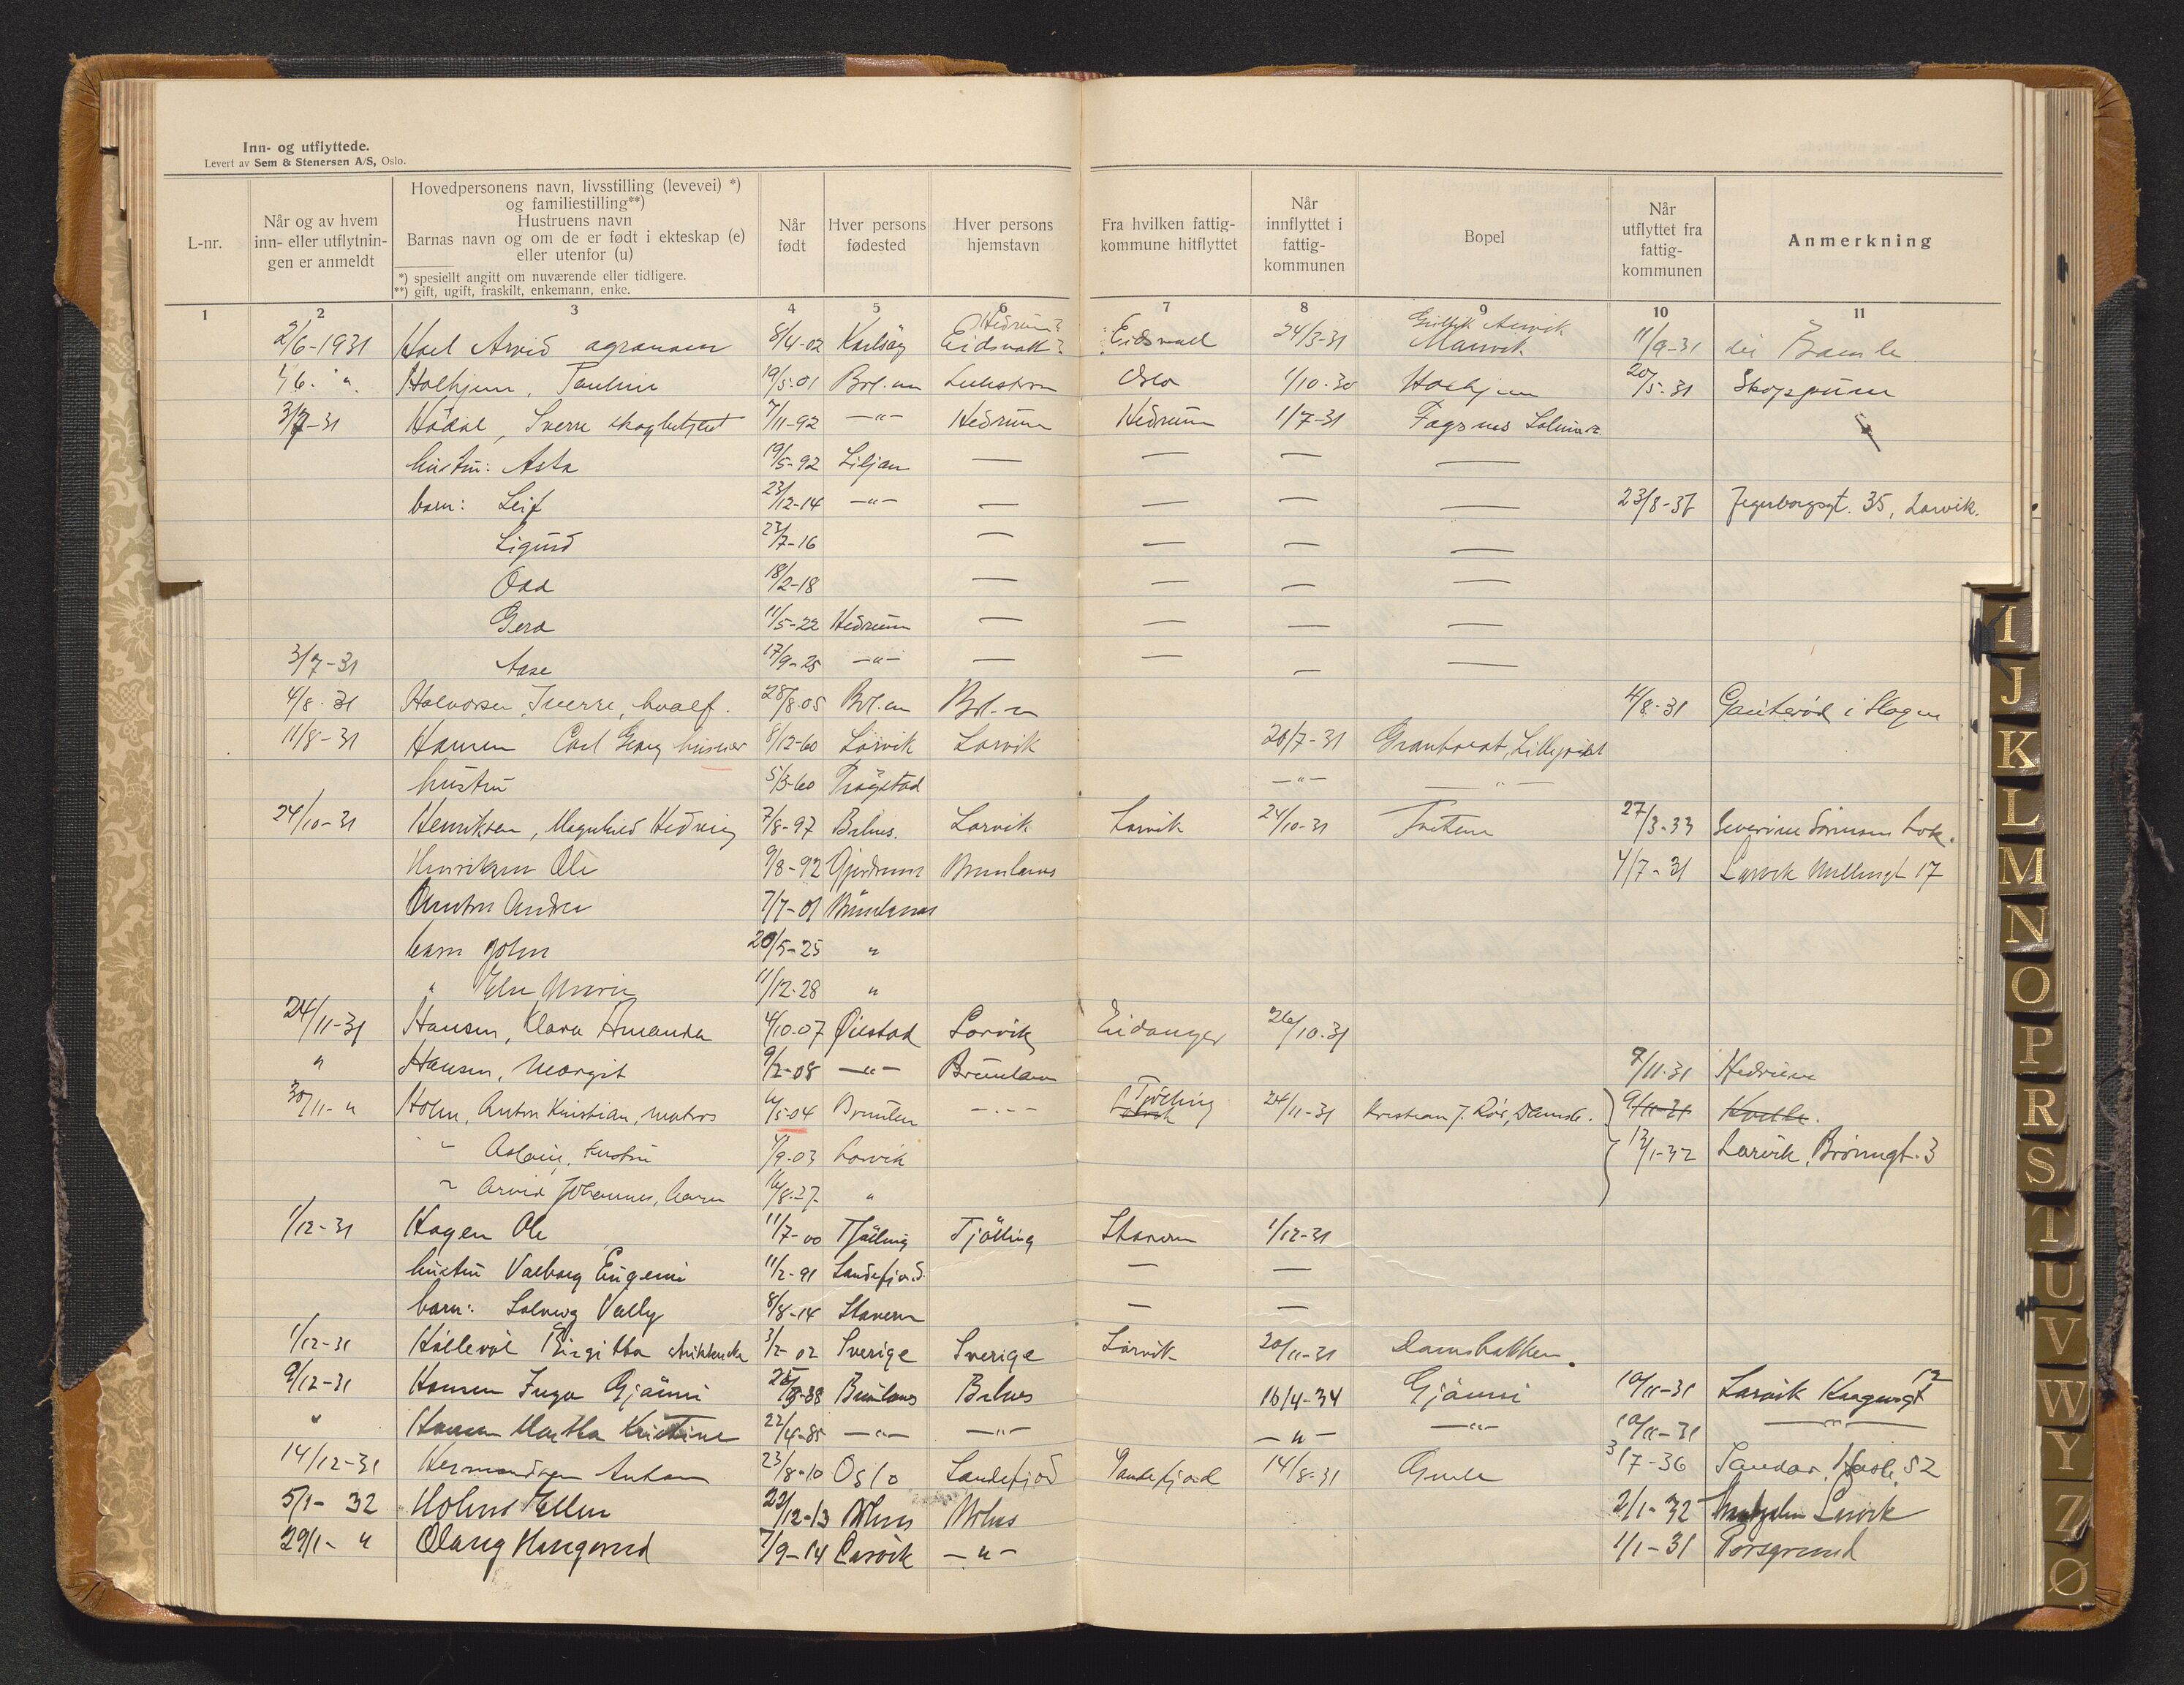 Inn- og utflyttede.
Levert av Sem & Stenersen A/S, Oslo.
L-nr.
Når og av hvem
inn- eller utflytnin-
gen er anmeldt
Hovedpersonens navn, livsstilling (levevei) *)
og familiestilling**)
Hustruens navn
Barnas navn og om de er født i ekteskap (e)
eller utenfor (u)
*) spesielt angitt om nuværende eller tidligere.
**) gift, ugift, fraskilt, enkemann, enke.
Når
født
Hver persons
fødested
Hver persons
hjemstavn
Fra hvilken fattig-
kommune hitflyttet
Når
innflyttet i
fattig-
kommunen
Bopel
Når
utflyttet fra
fattig-
kommunen
Anmerkning
1 2 3 4 5 6 7 8 9 10 11
Hedrum?
2/6-1931 Hoel Arvid agronom 8/4-02 Karlsøy Eidsvoll? Eidsvoll 24/3-31 Manvik 11/9-31 Bamle
1/6. " Holhjem, Pauline 19/5-01 Brl.nes Oslo 1/10-30 Holhjem 20/5-31 Skoppum
3/7-31 Hådal, Sverre skogbetjent 7/11-92 -"- Hedrum Hedrum 1/7-31 Fagsnes
hustru: Asta 19/5-92 Siljan — — — —
barn: Leif 23/12-14 -"- — — — — 23/8-37 Jegerborgsgt. 35, Larvik.
Sigurd 23/7-16 — — — —
Odd 18/2-18 — — — —
Gerd 11/5-22 Hedrum — — — —
3/7-31 Aase 17/9-25 -"- — — — —
4/8-31 Halvorsen, Sverre, hvalf. 28/8-05 Brl.nes Brl.nes 4/8-31 i Slagen
11/8-31 Hansen Carl Georg 8/12-60 Larvik Larvik 20/7-31
hustru 5/3-60 Trøgstad -"- — " —
24/10-31 Henriksen, Magnhild Hedvig 7/8-97 Brlnes. Larvik Larvik 24/10-31 Tveten 27/3-33 Severine Sörensen
Henriksen Ole 9/8-92 Gjerdrum Brunlanes 4/7-31 Larvik 17
Andrea 7/7-01 Brunlanes
barn John 20/5-25 "
" Marie 11/12-28 "
24/11-31 Hansen, Klara Amanda 4/10-07 Øiestad Larvik Eidanger 26/10-31
" Hansen, Margit 9/2-08 -"- Brunlanes 7/11-31 Hedrum
30/11-" Holm, Anton Kristian, matros 6/5-04 Brunlan -"- Tjölling Larvik 24/11-31 Kristian J. 9/11-31 Kvelle.
" hustru 4/9-03 Larvik 13/1-32 Larvik, Brönngt. 3
" Arvid Johannes, barn 16/8-27 "
1/12-31 Hagen Ole 11/7-00 Tjölling Tjölling Stavern 1/12-31
hustru Valborg Eugenie 11/2-91 Sandefjord — —
barn: Solveig Vally 8/8-14 Stavern — —
1/12-31 Birgitta 3/2-02 Sverige Sverige Larvik 20/11-31 Damsbakken.
9/12-31 Hansen Inga Gjönni 25/8-88 Brunlanes Brlnes 16/4-34 Gjönni 10/11-31 Larvik Kongegt 12
" Hansen Martha Kristine 22/4-85 -"- -"- -"- -"- 10/11-31 -"-
14/12-31 Hermandsen Anton 23/8-10 Oslo Sandefjord Sandefjord 14/8-31 3/7-36 Sandar, Hasle, 52
5/1-32 Holm Ellen 22/12-13 Brlnes Brlnes 2/1-32 Larvik
29/1-" Olaug Haugerud 7/9-14 Larvik -"- 1/1-31 Porsgrund
I
J
K
L
M
N
O
P
R
S
T
U
V
W
Y
Z
Ø